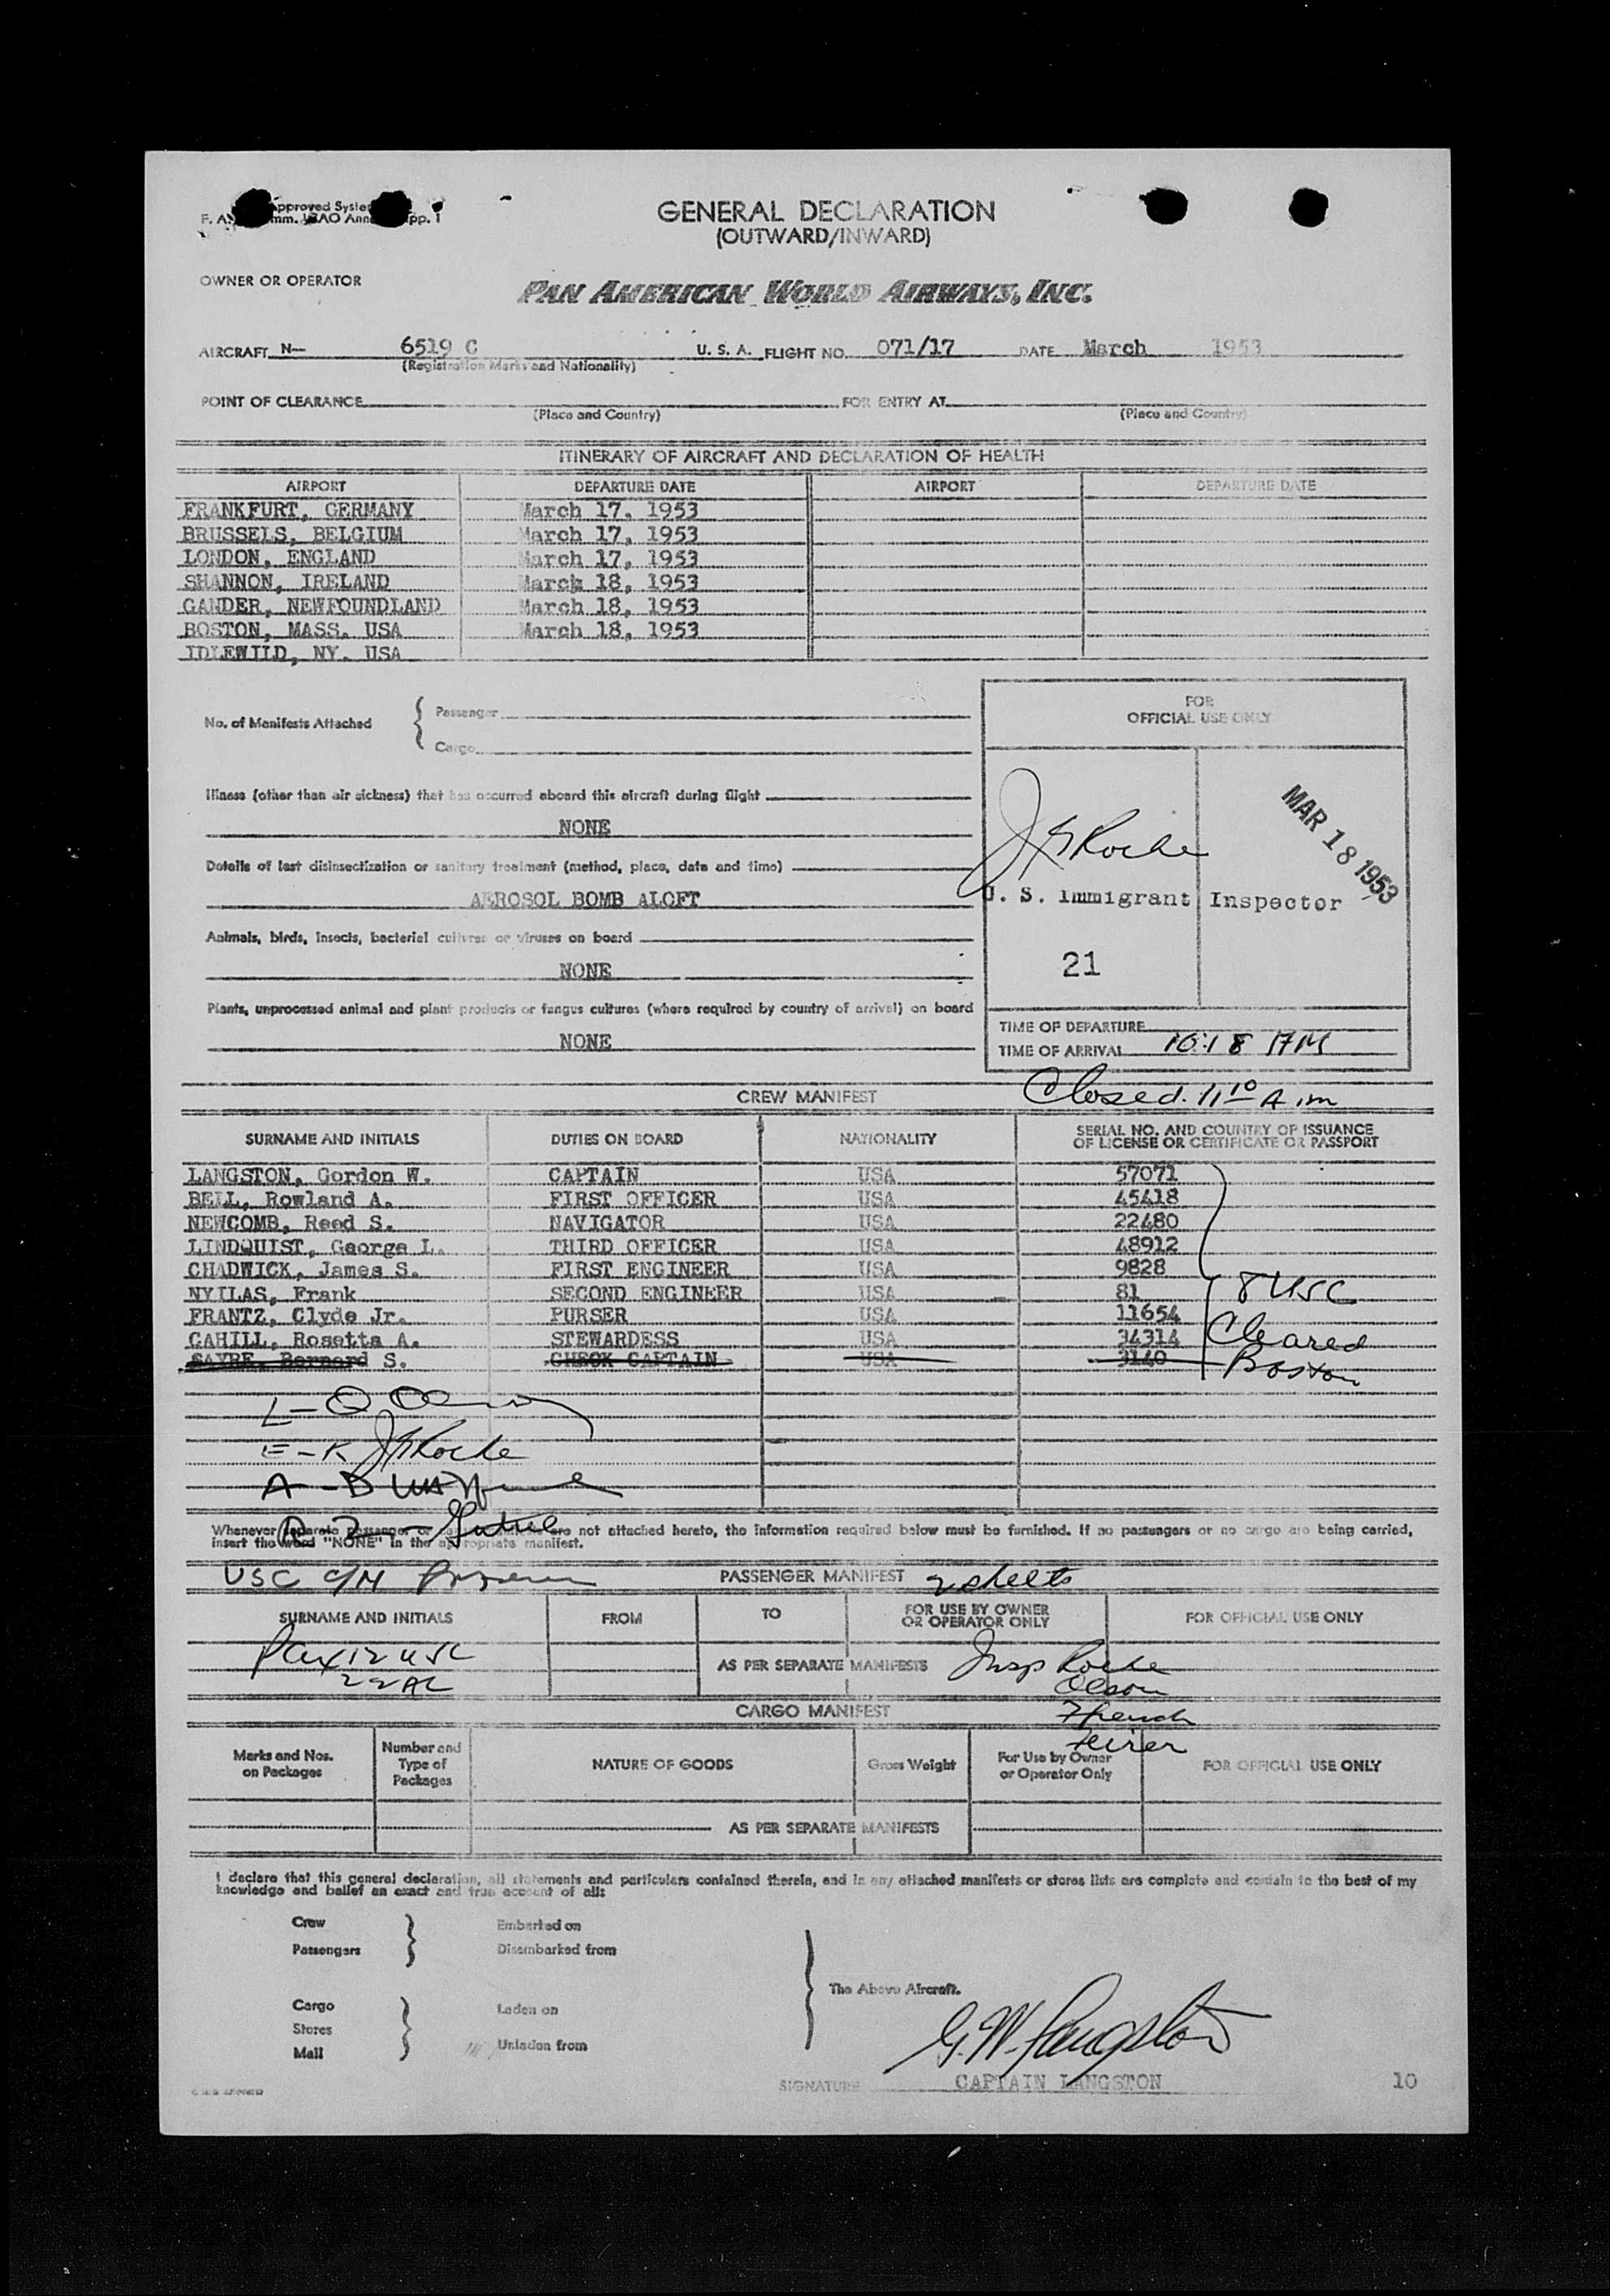 Approved
F. A. mm. ICAO Ann pp. 1
GENERAL DECLARATION
(OUTWARD/INWARD)
OWNER OR OPERATOR
PAN AMERICAN WORLD AIRWAYS, INC.
AIRCRAFT N— 6519 C U. S. A. FLIGHT NO. 071/17 DATE March 1953
(Registration Marks and Nationality)
POINT OF CLEARANCE FOR ENTRY AT
(Place and Country) (Place and Country)
ITINERARY OF AIRCRAFT AND DECLARATION OF HEALTH
AIRPORT DEPARTURE DATE AIRPORT DEPARTURE DATE
FRANKFURT, GERMANY March 17. 1953
BRUSSELS, BELGIUM March 17, 1953
LONDON, ENGLAND March 17, 1953
SHANNON, IRELAND March 18, 1953
GANDER, NEWFOUNDLAND March 18, 1953
BOSTON, MASS. USA March 18, 1953
IDLEWILD, NY. USA
No. of Manifests Attached { Passenger
Cargo
FOR
OFFICIAL USE ONLY
Illness (other than air sickness) that has occurred aboard this aircraft during flight
NONE
Details of last disinsectization or sanitary treatment (method, place, date and time)
AEROSOL BOMB ALOFT
Animals, birds, insects, bacterial cultures or viruses on board
NONE
Plants, unprocessed animal and plant products or fungus cultures (where required by country of arrival) on board
NONE
MAR 18 1953
J Roche
U. S. Immigrant Inspector
21
TIME OF DEPARTURE
TIME OF ARRIVAL 10:18 AM
Closed. 11 10 A.m
CREW MANIFEST
SURNAME AND INITIALS DUTIES ON BOARD NATIONALITY SERIAL NO. AND COUNTRY OF ISSUANCE
OF LICENSE OR CERTIFICATE OR PASSPORT
LANGSTON, Gordon W. CAPTAIN USA 57071
BELL, Rowland A. FIRST OFFICER USA 45418
NEWCOMB, Reed S. NAVIGATOR USA 22480
LINDQUIST, George L. THIRD OFFICER USA 48912
CHADWICK, James S. FIRST ENGINEER USA 9828
NYILAS, Frank SECOND ENGINEER USA 81
FRANTZ, Clyde Jr. PURSER USA 11654
CAHILL, Rosetta A. STEWARDESS USA 34314
SAYRE, Bernard S. CHECK CAPTAIN USA 3140
8 USC
Cleared
Boston
L - O
E - K J Roche
A - D
Whenever separate passenger or are not attached hereto, the information required below must be furnished. If no passengers or no cargo are being carried,
insert the word "NONE" in the appropriate manifest.
USC
PASSENGER MANIFEST 2 sheets
SURNAME AND INITIALS FROM TO FOR USE BY OWNER
OR OPERATOR ONLY FOR OFFICIAL USE ONLY
Pax 12 USC
22 AL
AS PER SEPARATE MANIFESTS Insp Roche
Olson
French
CARGO MANIFEST
Marks and Nos.
on Packages Number and
Type of
Packages NATURE OF GOODS Gross Weight For Use by Owner
or Operator Only FOR OFFICIAL USE ONLY
AS PER SEPARATE MANIFESTS
I declare that this general declaration, all statements and particulars contained therein, and in any attached manifests or stores lists are complete and contain to the best of my
knowledge and belief an exact and true account of all:
Crew Embarked on
Passengers Disembarked from
The Above Aircraft.
Cargo Laden on
Stores
Mail Unladen from
G. W. Langston
SIGNATURE CAPTAIN LANGSTON 10